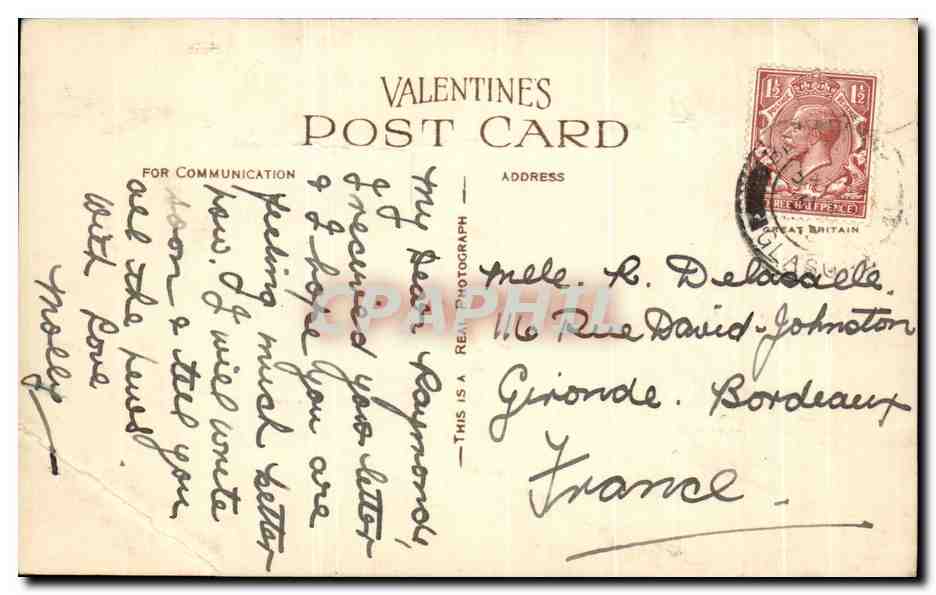 VALENTINE'S
POST CARD
FOR COMMUNICATION
ADDRESS
THIS IS A REAL PHOTOGRAPH
1½ 1½
THREE HALFPENCE
GREAT BRITAIN
GLASGOW
My Dear Raymonde,
I received your letter
& I hope you are
feeling much better
now. I will write
soon & tell you
all the news
With Love
Molly
Melle. R. Delasalle.
116 Rue David-Johnston
Gironde. Bordeaux
France.
CPAPHIL